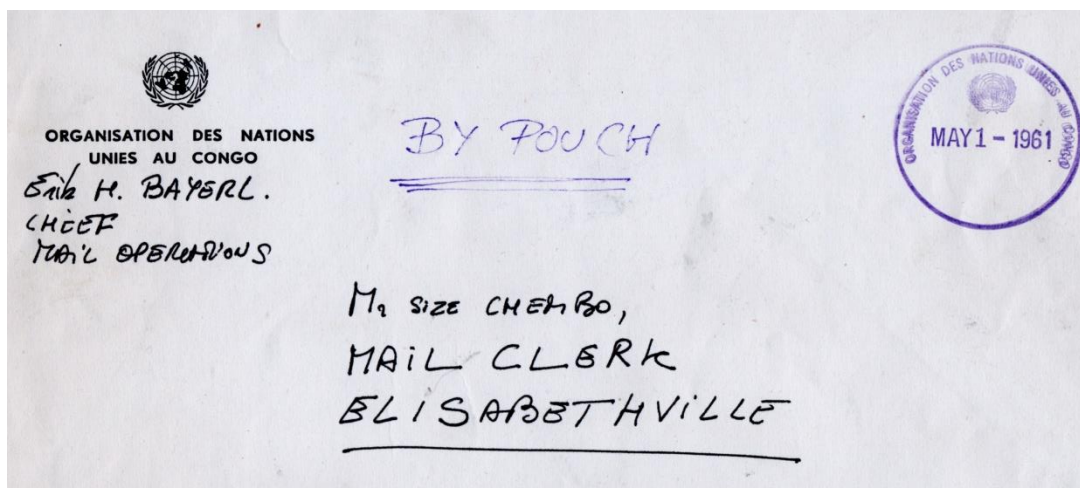 ORGANISATION DES NATIONS
UNIES AU CONGO
Erik H. BAYERL.
CHIEF
MAIL OPERATIONS
BY POUCH
ORGANISATION DES NATIONS UNIES AU CONGO
MAY 1 - 1961
Mr SIZE CHEMBO,
MAIL CLERK
ELISABETHVILLE